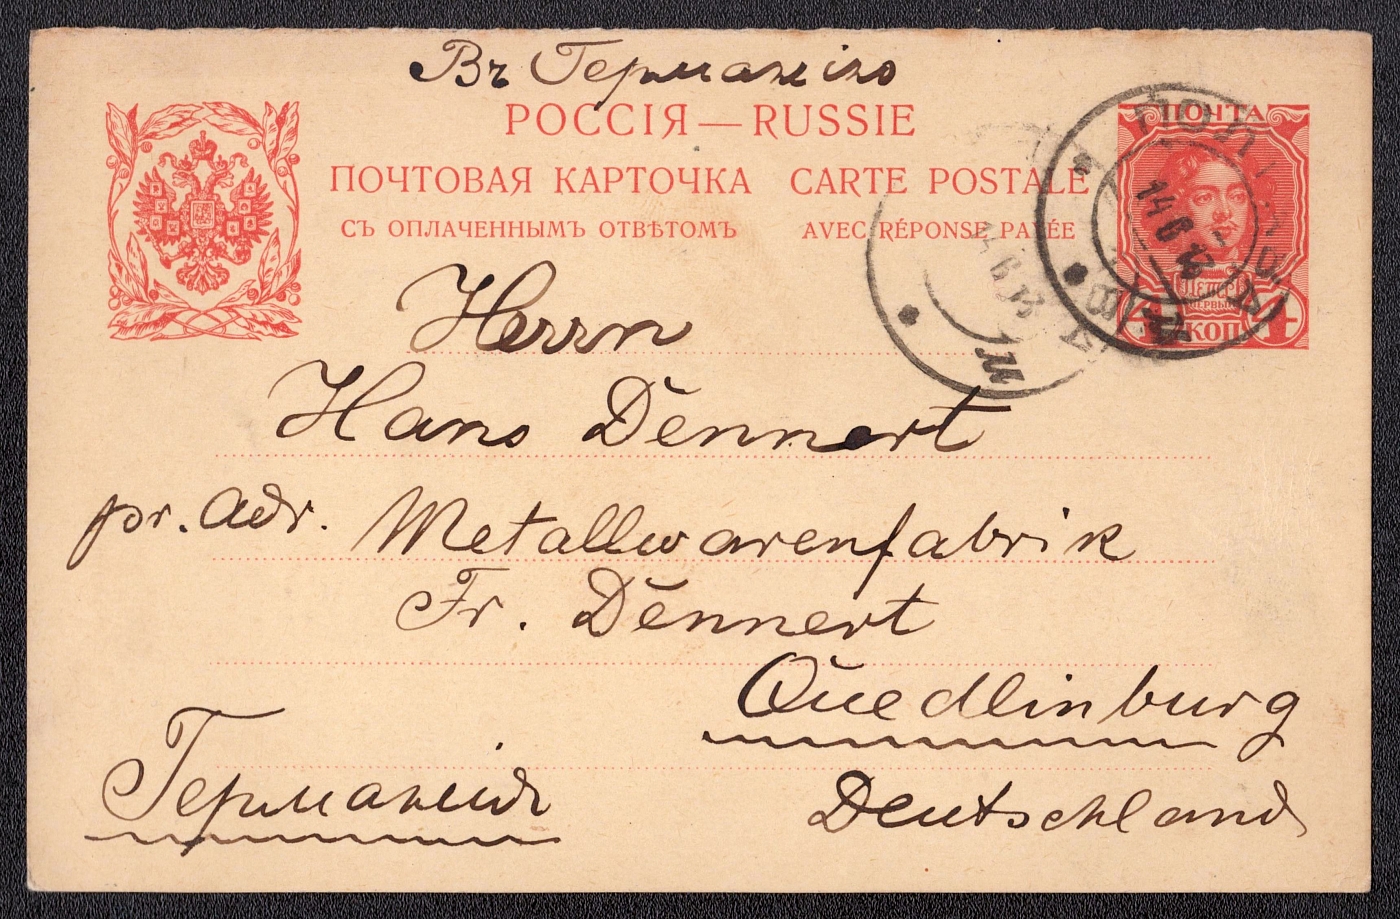 Въ Германію
РОССІЯ—RUSSIE
ПОЧТОВАЯ КАРТОЧКА CARTE POSTALE
СЪ ОПЛАЧЕННЫМЪ ОТВѢТОМЪ AVEC RÉPONSE PAYÉE
ПОЧТА
4 КОП 4
Herrn
Hans Dennert
pr. Adr. Metallwarenfabrik
Fr. Dennert
Quedlinburg
Германія
Deutschland